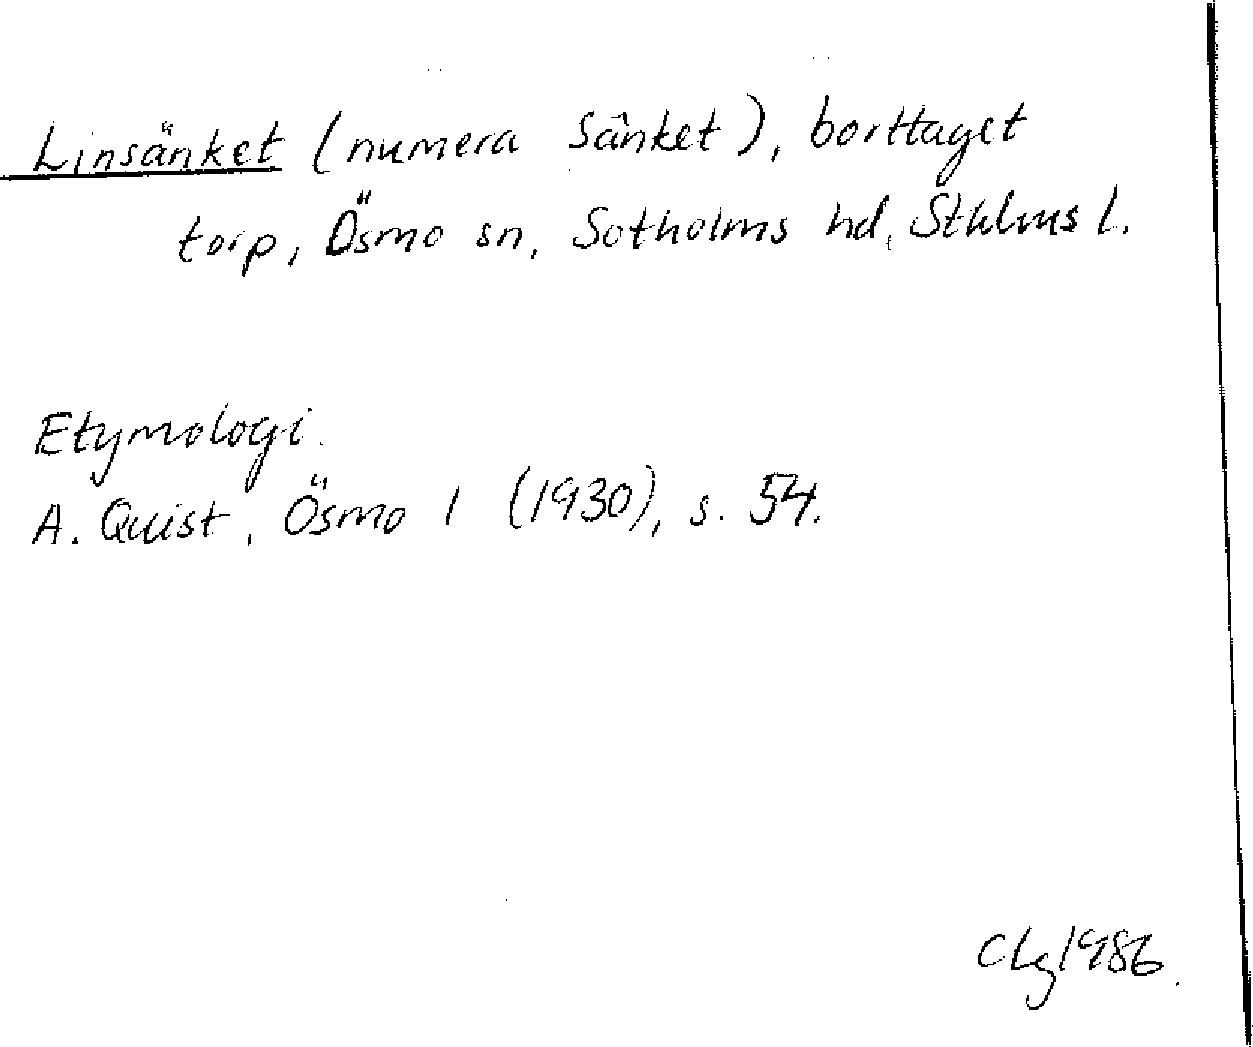 Linsänket (numera Sänket), borttaget
torp, Ösmo sn, Sotholms hd, Sthlms l.
Etymologi.
A. Quist, Ösmo 1 (1930), s. 54.
CLg 1986.